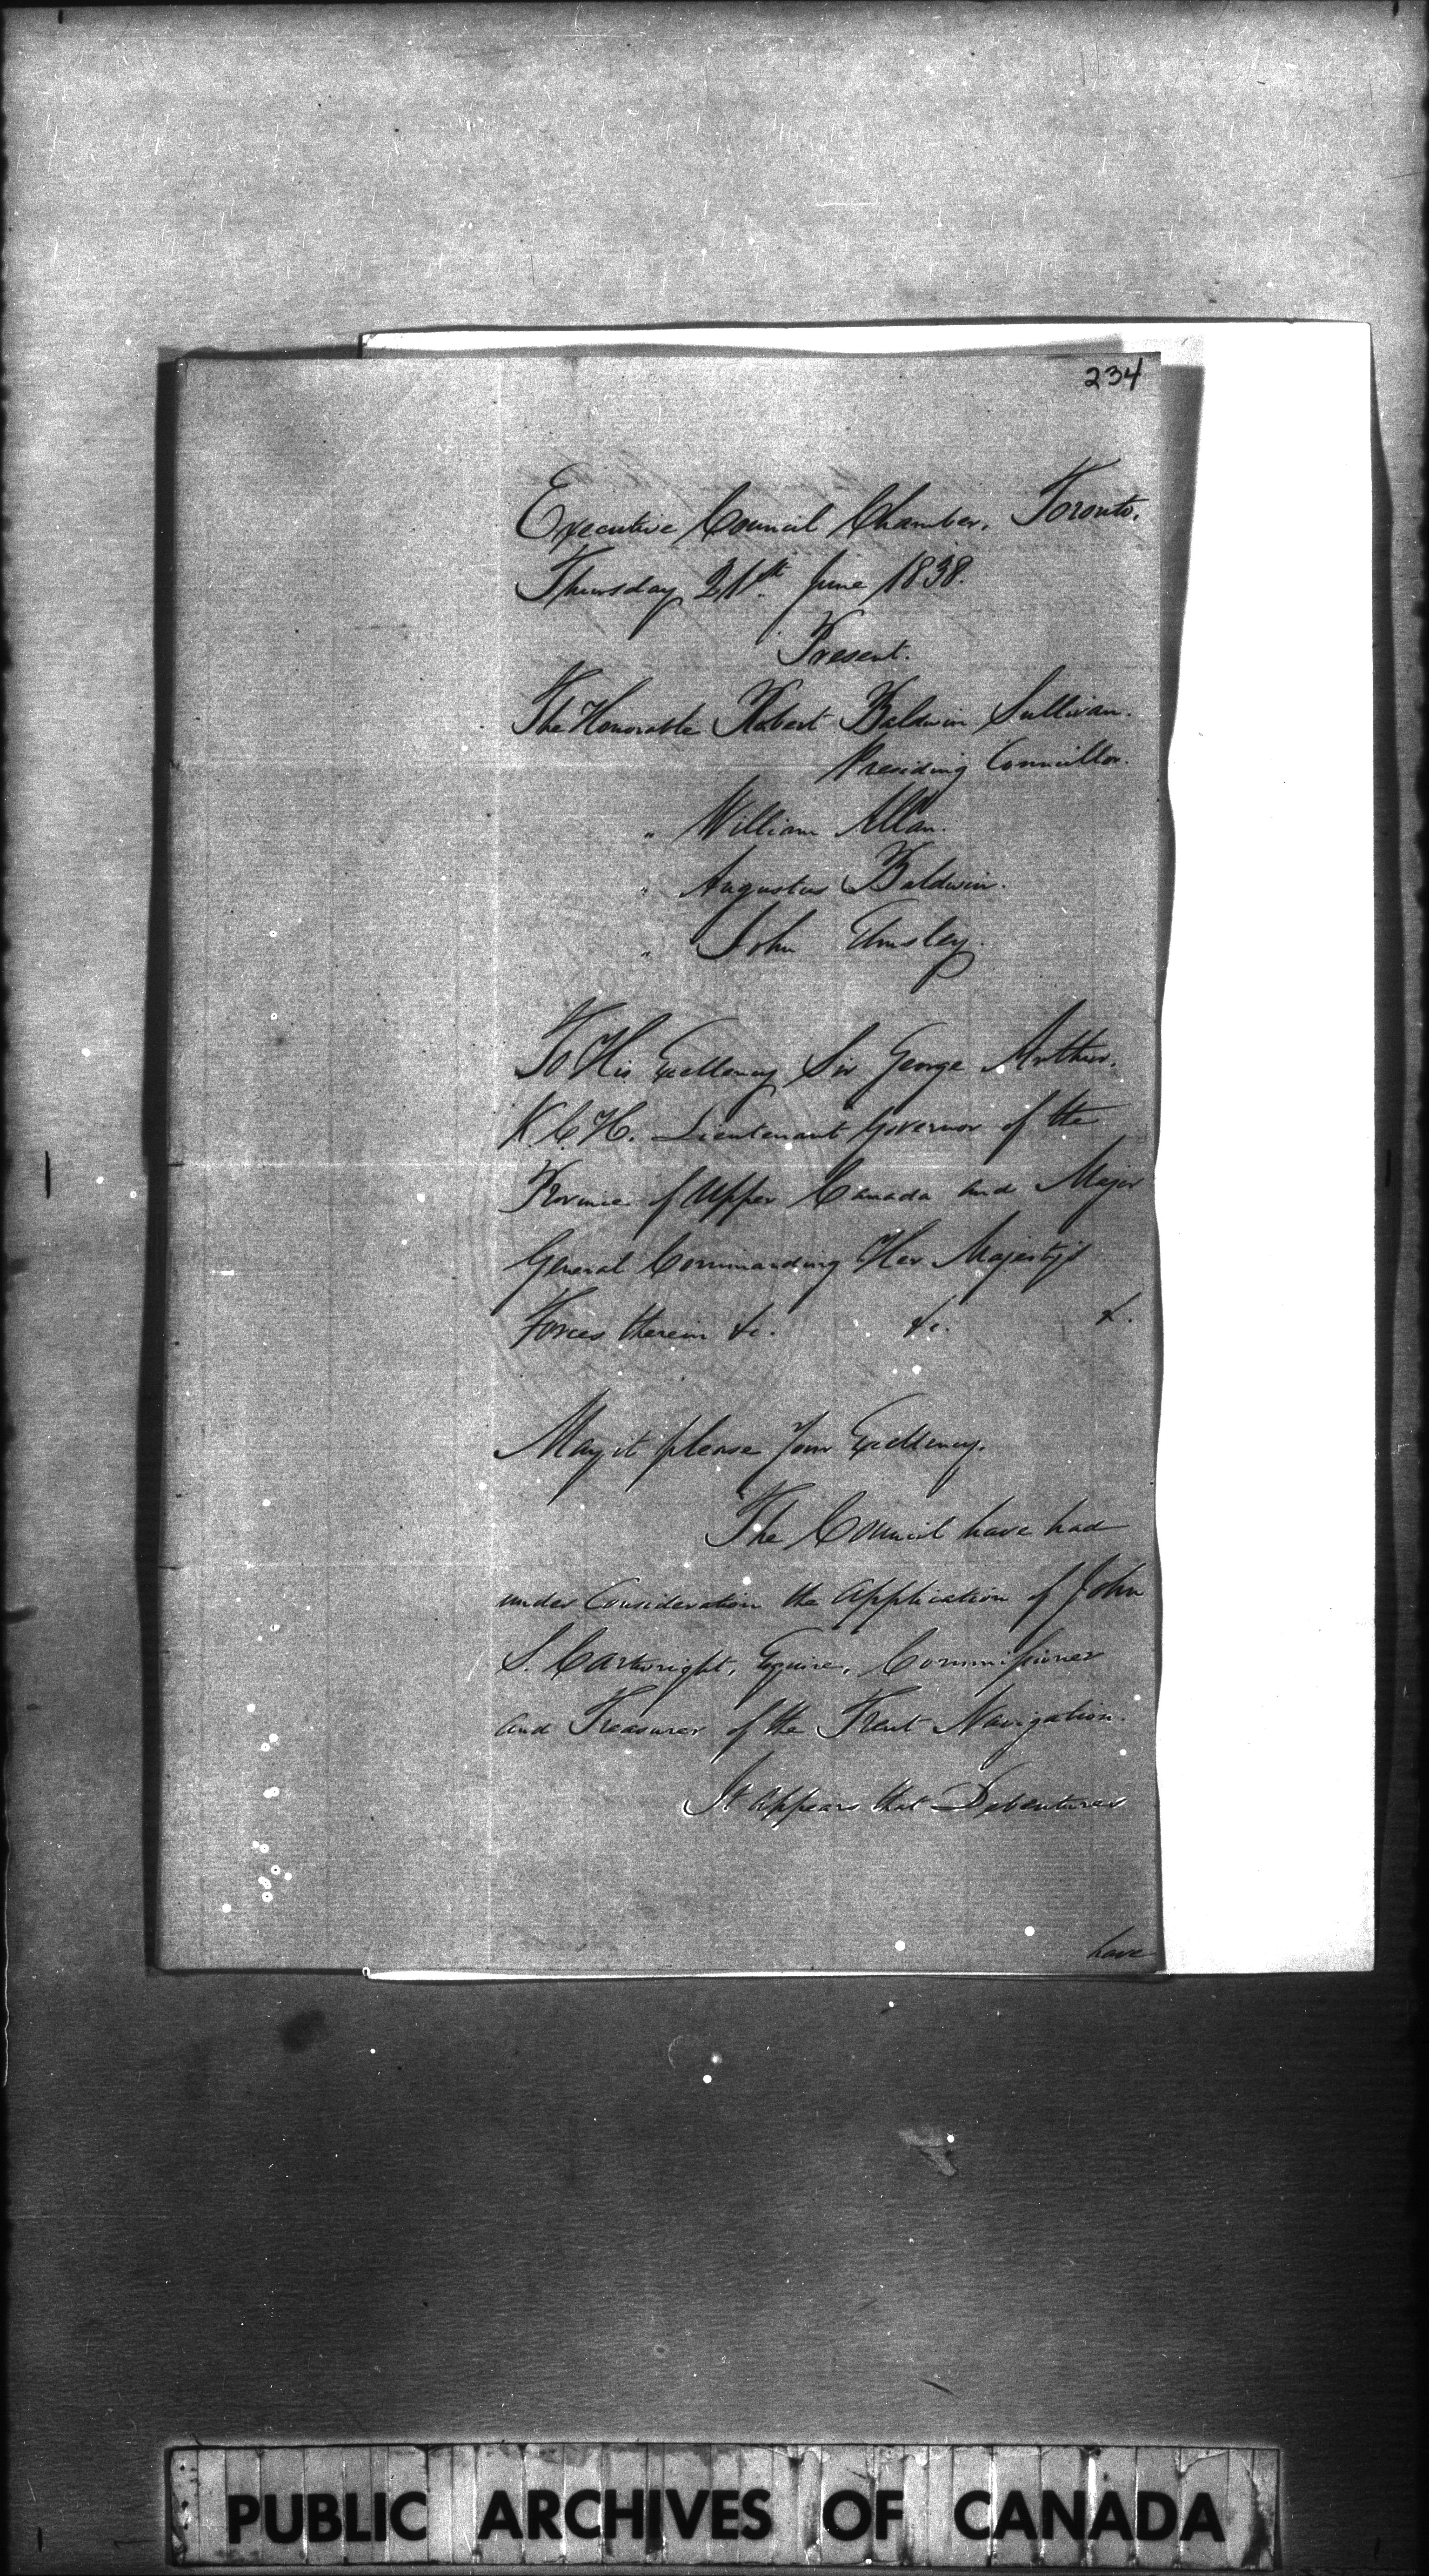 234
Executive Council Chamber, Toronto.
Thursday 21st. June 1838.
Present.
The Honorable Robert Baldwin Sullivan.
Presiding Councillor.
" William Allan.
" Augustus Baldwin.
" John Elmsley.
To His Excellency Sir George Arthur.
K.C.H. Lieutenant Governor of the
Province of Upper Canada and Major
General Commanding Her Majesty's
Forces therein &c. &c. &.
May it please Your Excellency.
The Council have had
under Consideration the Application of John
S. Cartwright, Esquire, Commissioner
and Treasurer of the Trent Navigation.
It appears that Debentures
have
PUBLIC ARCHIVES OF CANADA